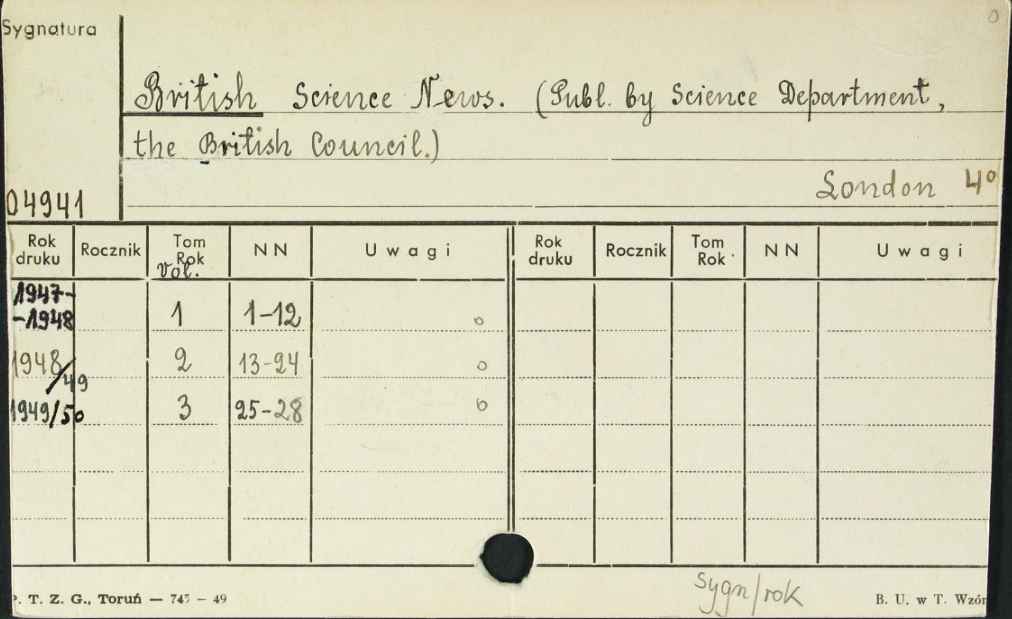 Sygnatura
British Science News. (Publ. by Science Department,
the British Council.)
London 4°
04941
Rok druku Rocznik Tom Rok Vol. NN Uwagi Rok druku Rocznik Tom Rok NN Uwagi
1947-
-1948 1 1-12 o
1948/49 2 13-24 o
1949/50 3 25-28 o
sygn/rok
P. T. Z. G., Toruń — 745 — 49 B. U. w T. Wzór